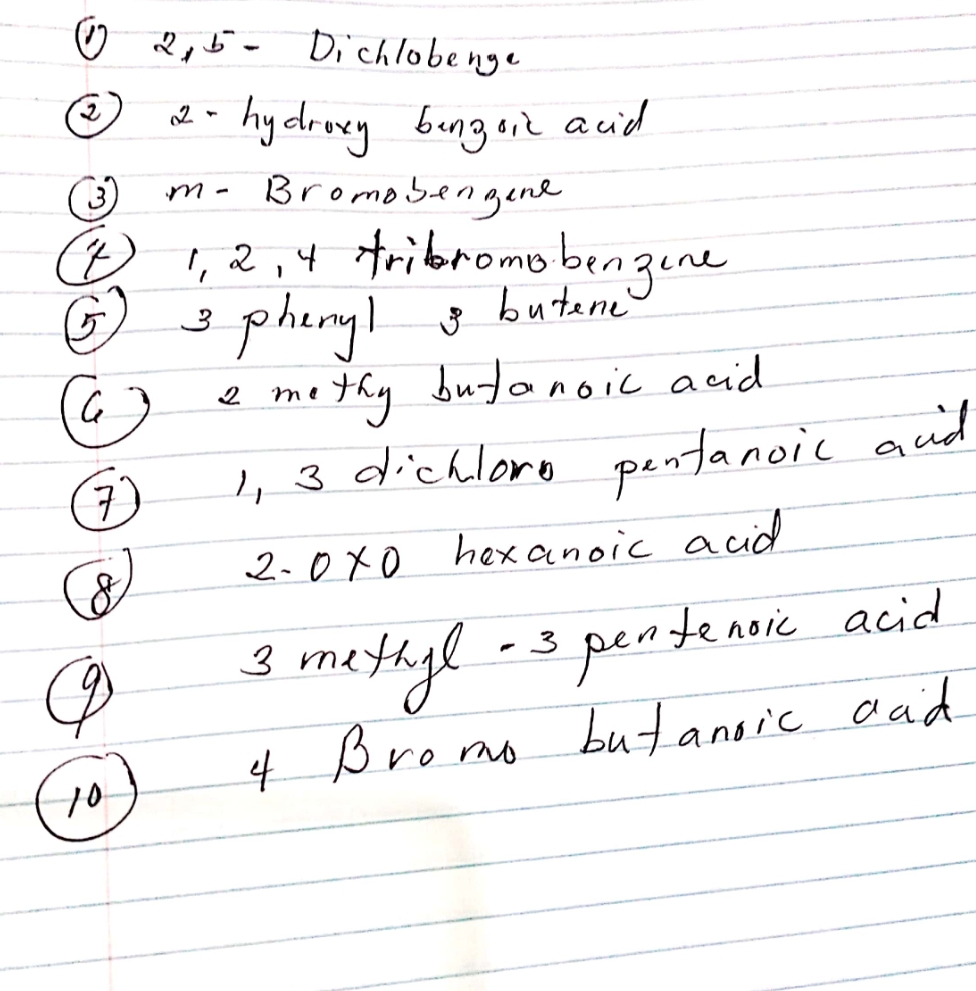 ① 2,5- Dichlobenze
② 2- hydroxy benzoic acid
③ m- Bromobenzene
④ 1,2,4 tribromobenzene
⑤ 3 phenyl 3 butene
⑥ 2 methy butanoic acid
⑦ 1, 3 dichloro pentanoic acid
⑧ 2-oxo hexanoic acid
⑨ 3 methyl -3 pentenoic acid
⑩ 4 Bromo butanoic acid